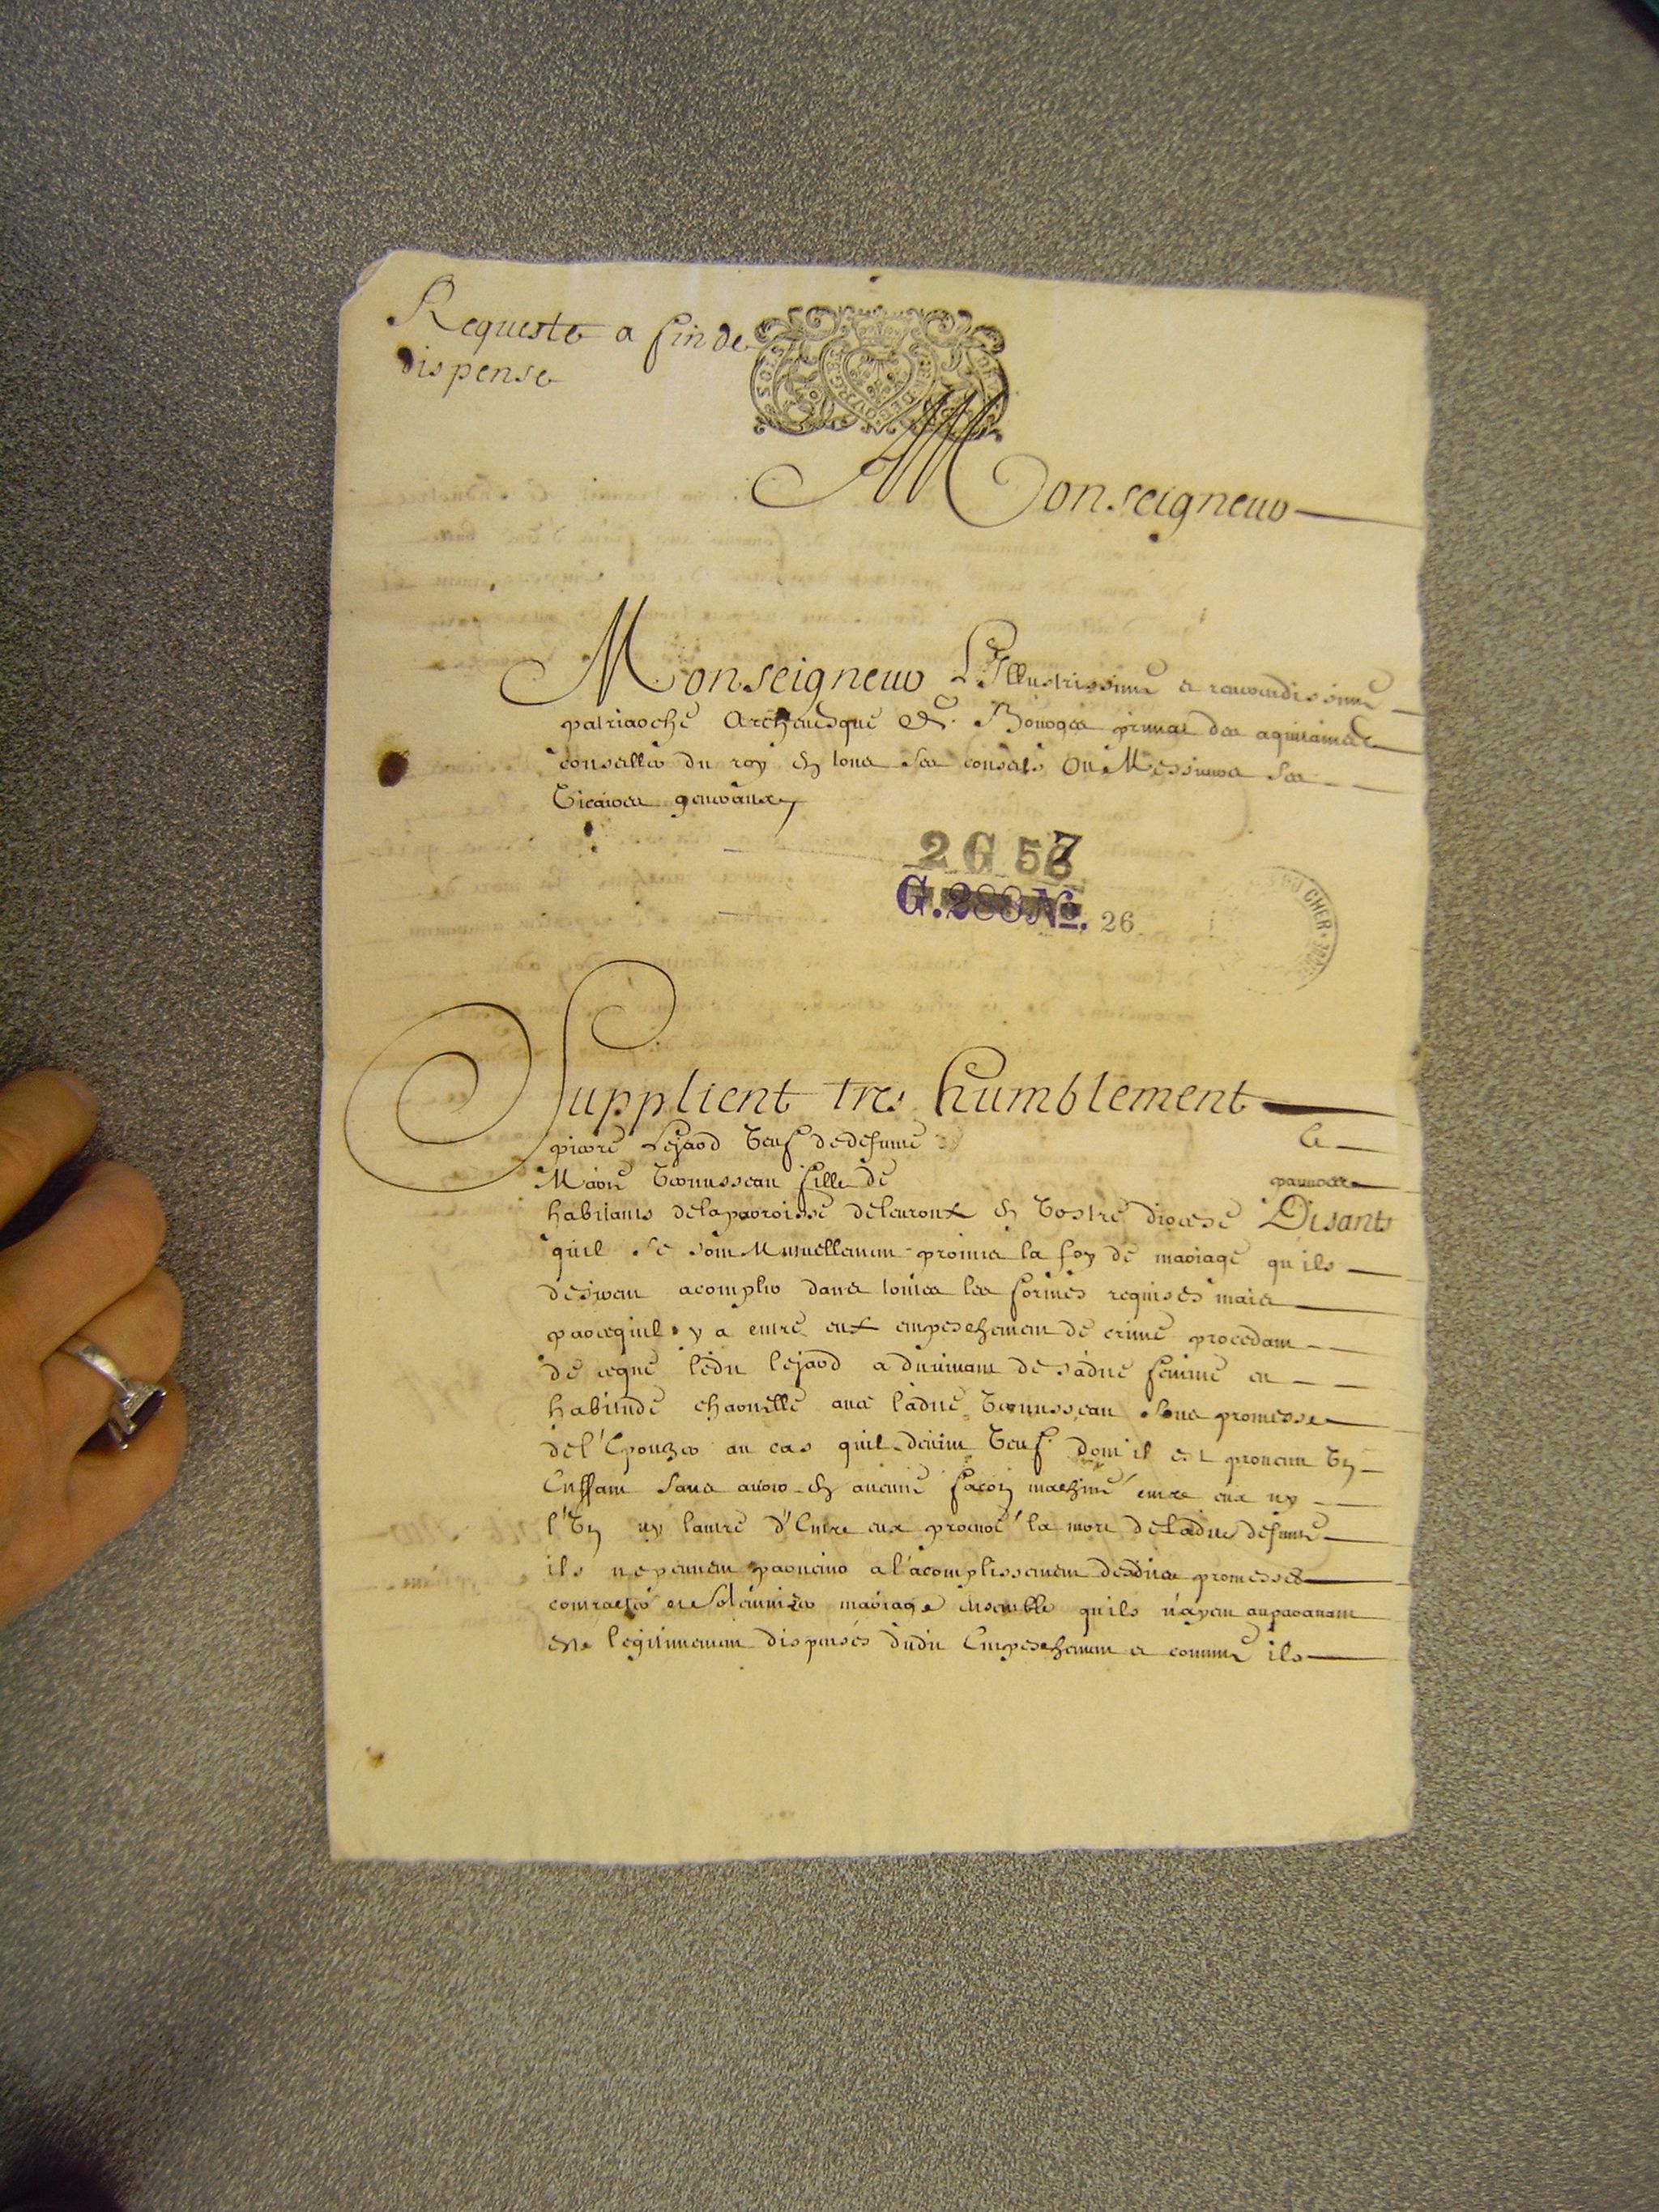 Requeste a fin de
dispense
SOLS
G DE BOURGES
Monseigneur
Monseigneur L'Illustrissime et reverendissime
patriarche Archevesque de Bourges primat des aquitaines
conseiller du roy en tous ses conseils Ou Messieurs ses
Vicaires generaux
2 G 57
G. 288 No. 26
DU CHER
Supplient tres humblement
pierre Lejard veuf de defunte et
Marie Vernusseau fille de pauvres
habitants de la parroisse deleuroux en Vostre diocese Disants
quil se sont Mutuellement promis la foy de mariage qu'ils
desirent acomplir dans toutes les formes requises mais
parcequil y a entre eux empeschement de crime procedant
de ceque ledit lejard a du vivant de sadite femme eu
habitude charnelle avec ladite Vernusseau sous promesse
del'Epouzer au cas quil devint Veuf dont il est provenu Un
Enffant sans avoir en aucune façon machiné entre eux ny
l'Un ny lautre d'Entre eux procuré la mort deladite defunte
ils ne peuvent parvenir a l'acomplissement desdites promesses
contracter et Solemnizer mariage ensemble quils n'ayent auparavant
esté legitimement dispensés dudit Empeschement et comme ils